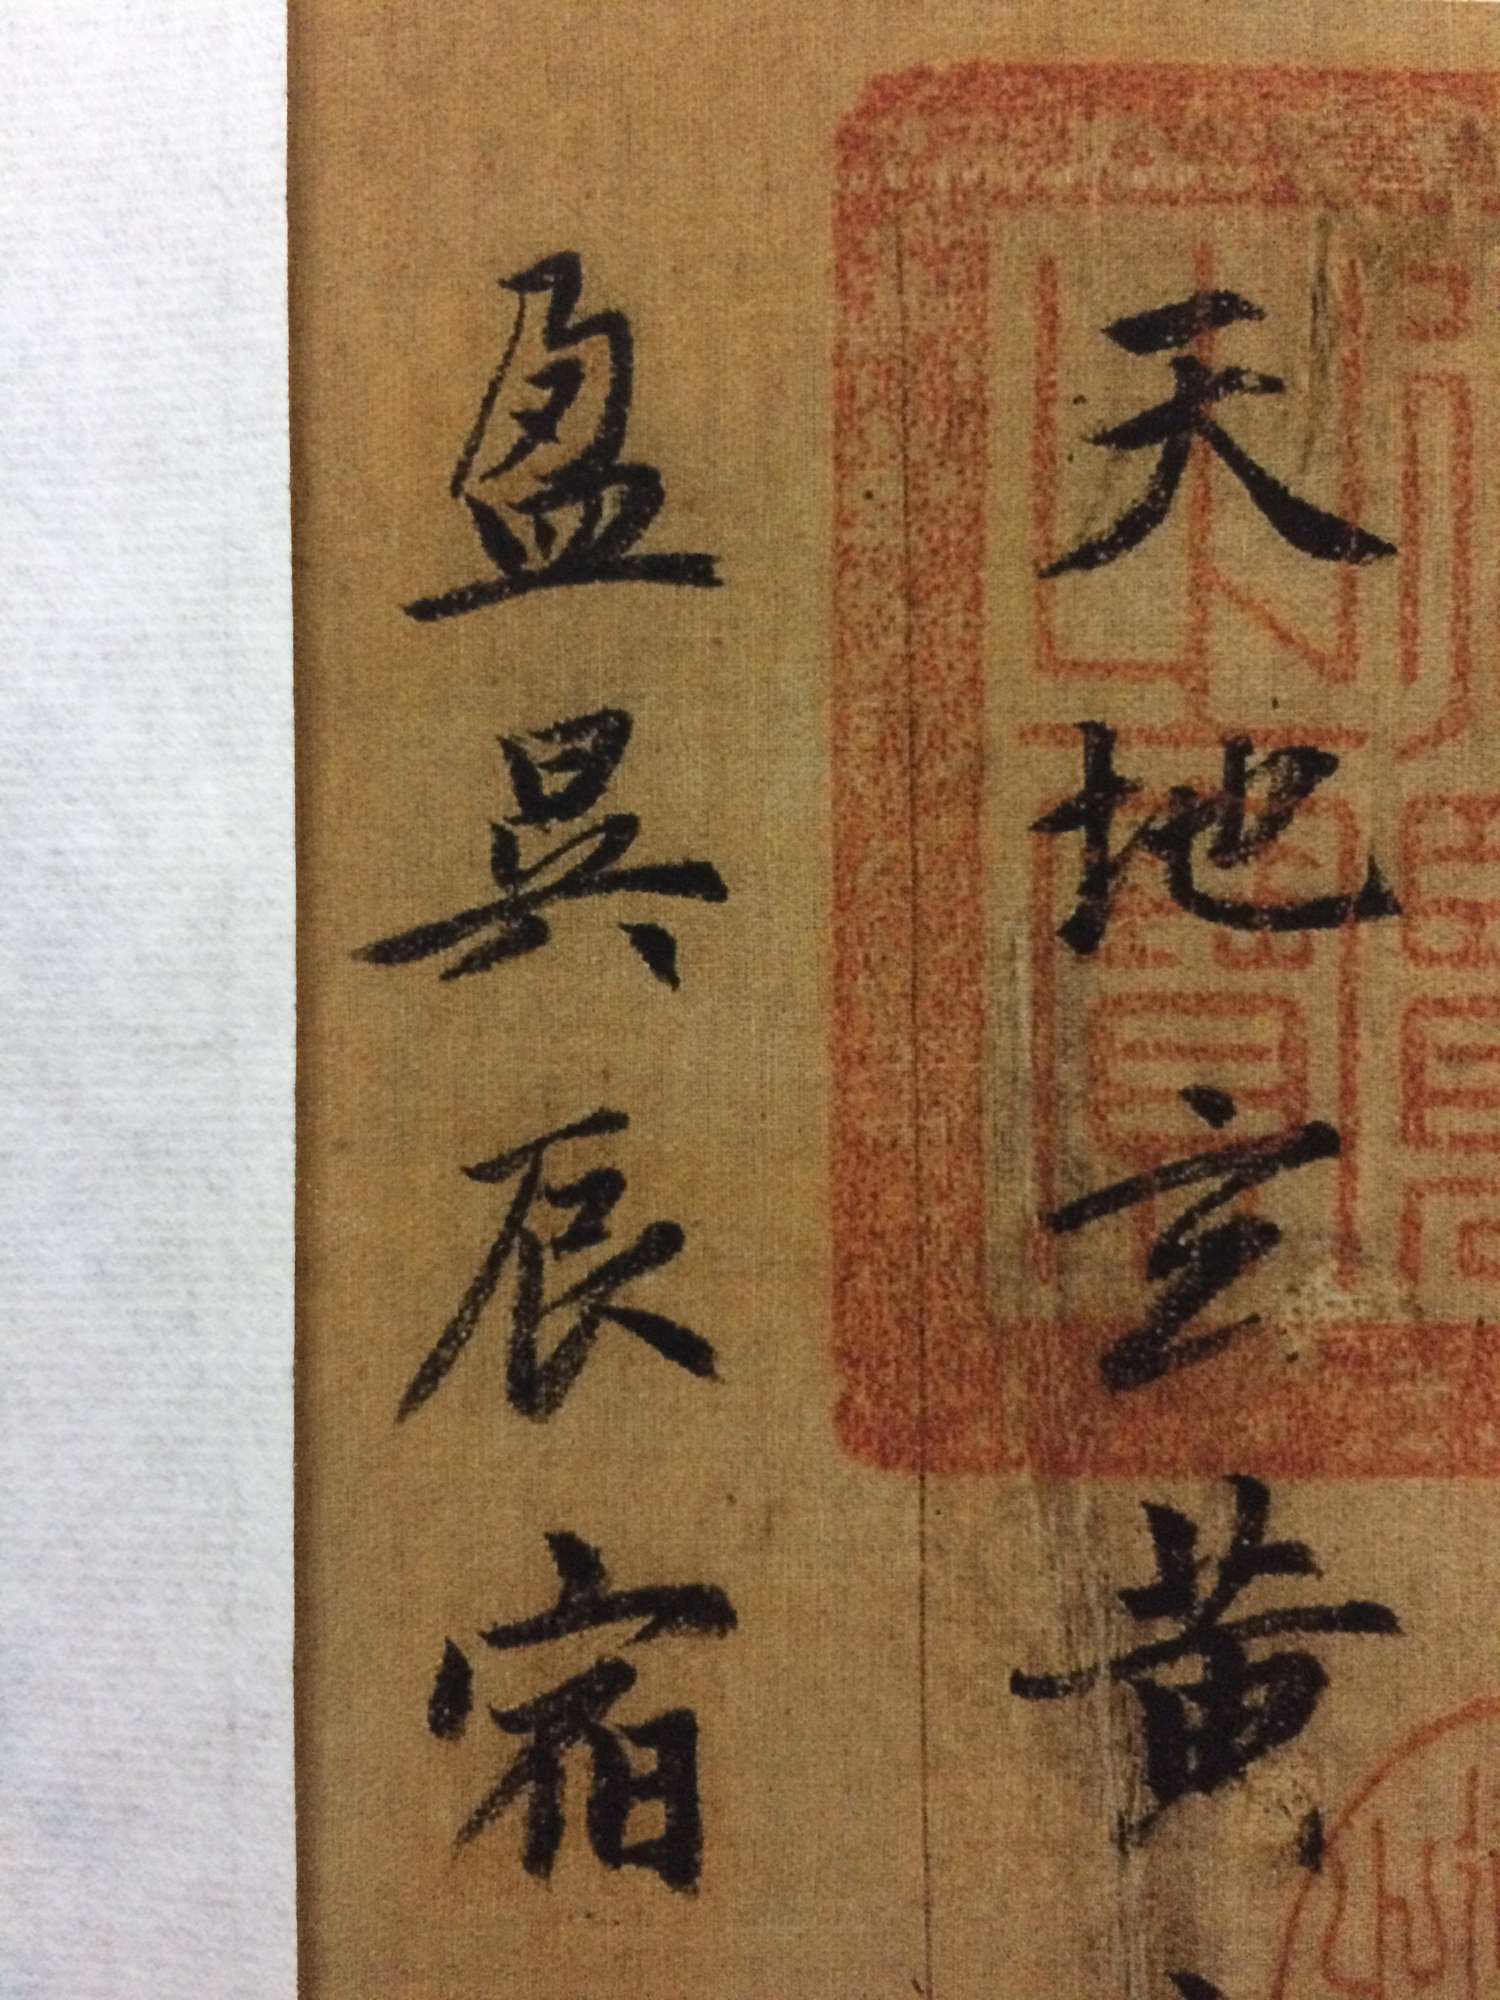 天地玄黃
盈昃辰宿